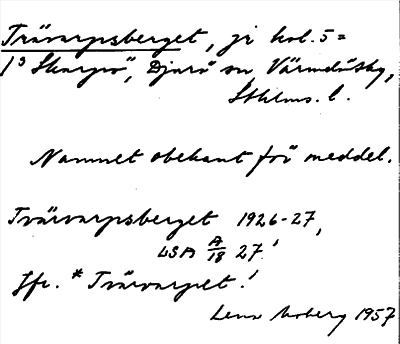 Tvärvarpsberget, jr kol. 5 =
1³ Skarpö, Djurö sn Värmdö skg,
Sthlms. l.
Namnet obekant för meddel.
Tvärvarpsberget 1926-27,
LSA A/18 27!
Jfr. * Tvärvarpet!
Lena Moberg 1957